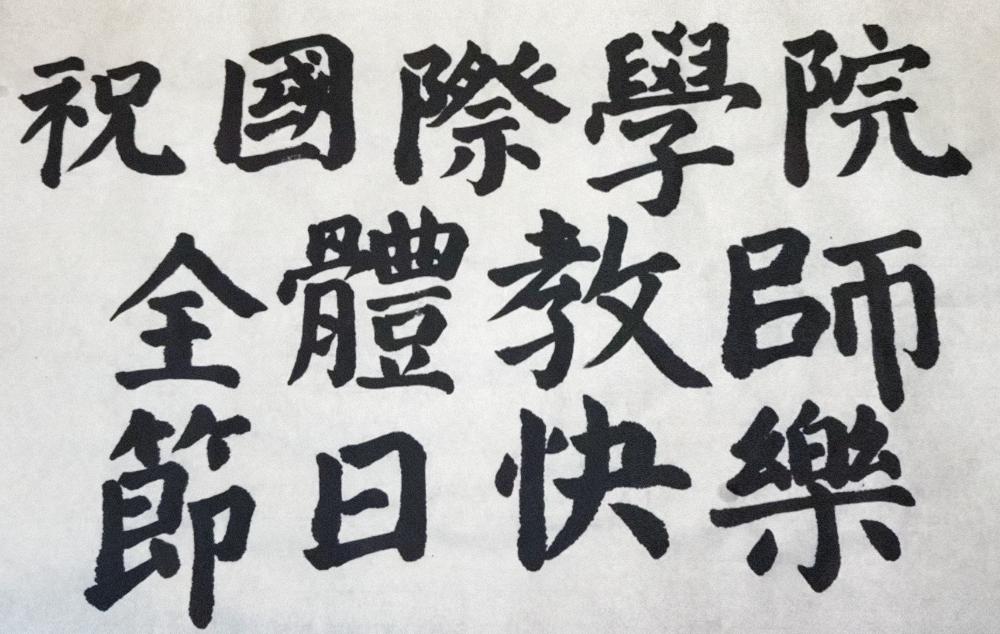 祝國際學院
全體教師
節日快樂